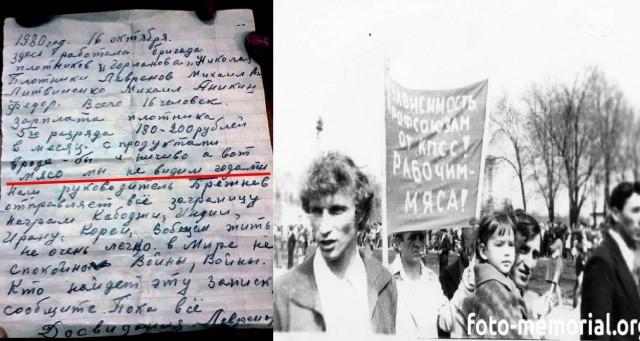 1980 год. 16 октября.
здесь работала бригада
плотников "Горланова" Николая
Плотники Лавранов Михаил Ан
Литвиненко Михаил Аникин
Федор. Всего 16 человек.
Зарплата плотника
5го разряда 180-200 рублей
в месяц. с продуктами
вроде-бы и ничиво а вот
мясо мы не видим годами
наш руководитель Брежнев
отправляет всё заграницу
неграм. Индии,
Ирану, Кореи, Вобщим жить
не очень легко. в Мире не
спокойно Войны, Войны.
Кто найдет эту Записк
сообщите. Пока всё
Досвидания.
НЕЗАВИСИМОСТЬ
ПРОФСОЮЗАМ
ОТ КПСС!
РАБОЧИМ-
МЯСА!
foto-memorial.org